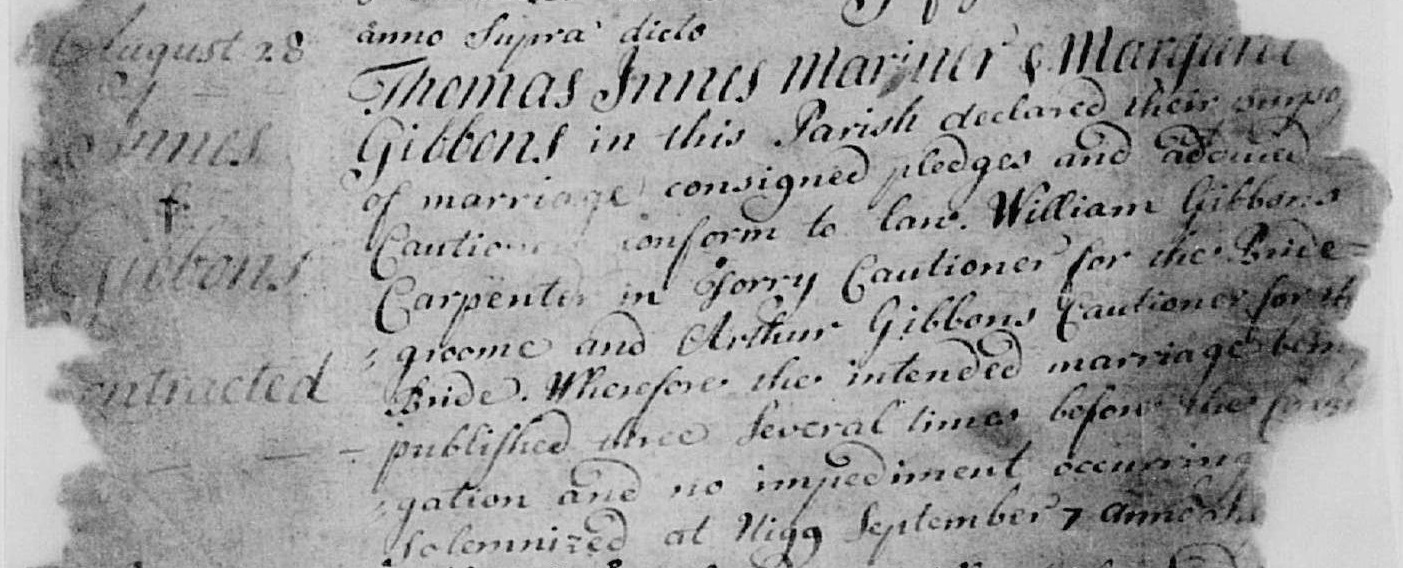 anno Supra dicto
August 28
Thomas Innes Mariner &
Innes
Gibbons in this Parish declared their
of marriage consigned pledges and
†
conform to law. William Gibbons
Gibbons
Carpenter in Torry Cautioner for the Bride=
groome and Arthur Gibbons Cautioner for
Bride. Wherefore the intended marriage
contracted
published three several times before the
gation and no impediment occurring
solemnized at Nigg September 7 anno